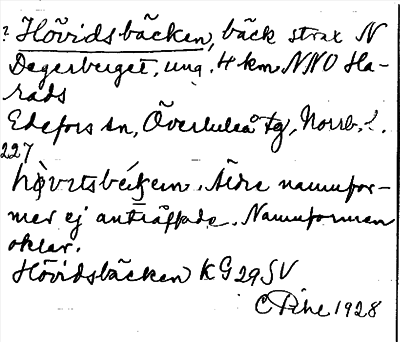 ? Hövidsbäcken, bäck strax N
Degerberget, ung. 4 km NNO Ha-
rads
Edefors sn, Överluleå tg, Norrb. l.
227
Äldre namnfor-
mer ej anträffade. Namnformen
oklar.
Hövidsbäcken KG 29 SV
C Pihl 1928